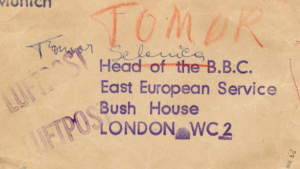 Munich
TOMOR
Tomor Selenica
LUFTPOST
LUFTPOST
Head of the B.B.C.
East European Service
Bush House
LONDON WC2